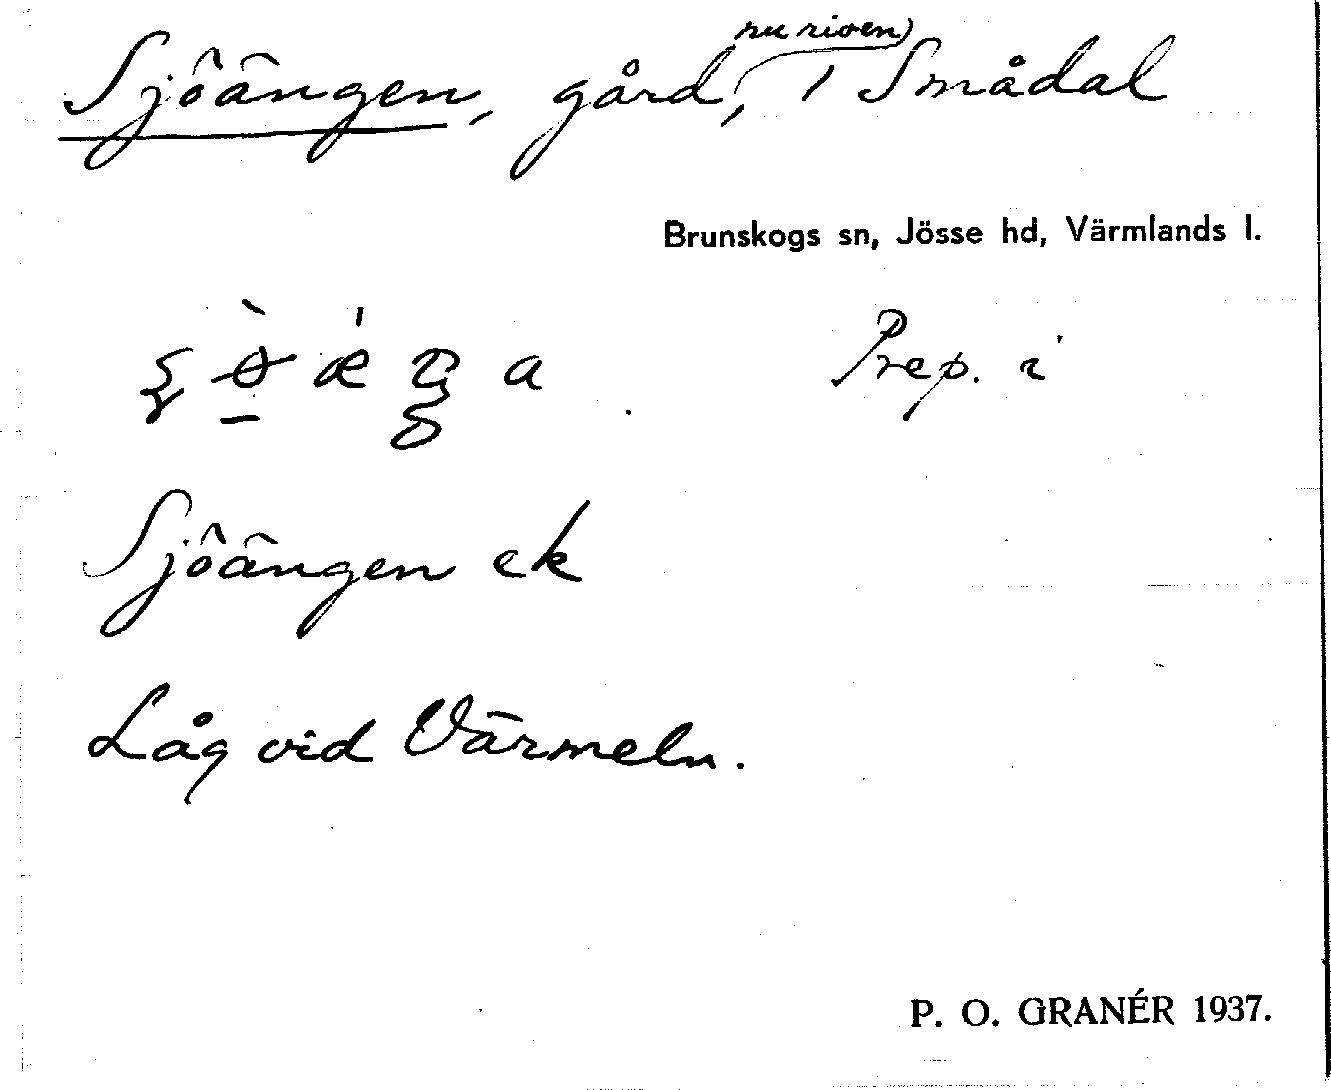 Sjöängen, gård, (nu riven) 1 Smådal
Brunskogs sn, Jösse hd, Värmlands l.
Prep. i
Sjöängen ek
Låg vid Värmeln.
P. O. GRANÉR 1937.